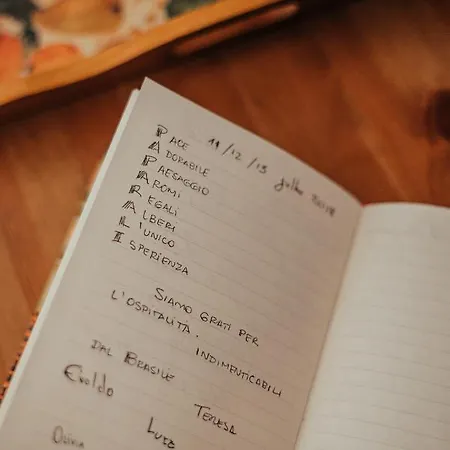 11/12/13 Julho 2018
PACE
ADORABILE
PAESAGGIO
AROMI
REGALI
ALBERI
L'UNICO
ISPERIENZA
SIAMO GRATI PER
L'OSPITALITÀ.
INDIMENTICABILI
DAL BRASILE
Evaldo
TERESA
Luiz